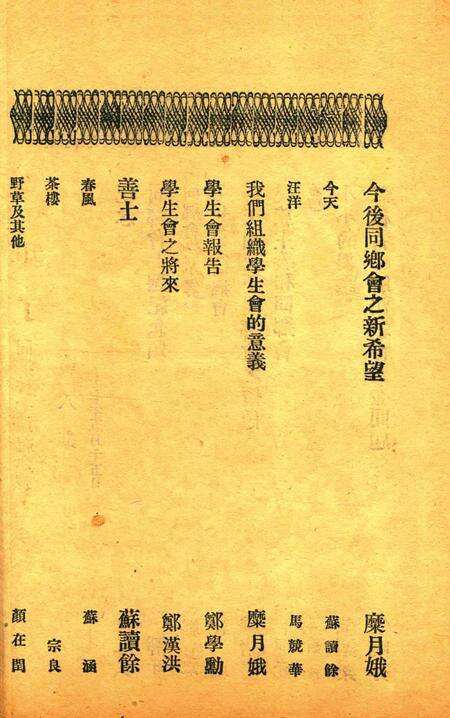 今後同鄉會之新希望 糜月娥
今天 蘇讀餘
汪洋 馬競華
我們組織學生會的意義 糜月娥
學生會報告 鄭學勳
學生會之將來 鄭漢洪
善士 蘇讀餘
春風 蘇涵
茶樓 宗良
野草及其他 顏在閏